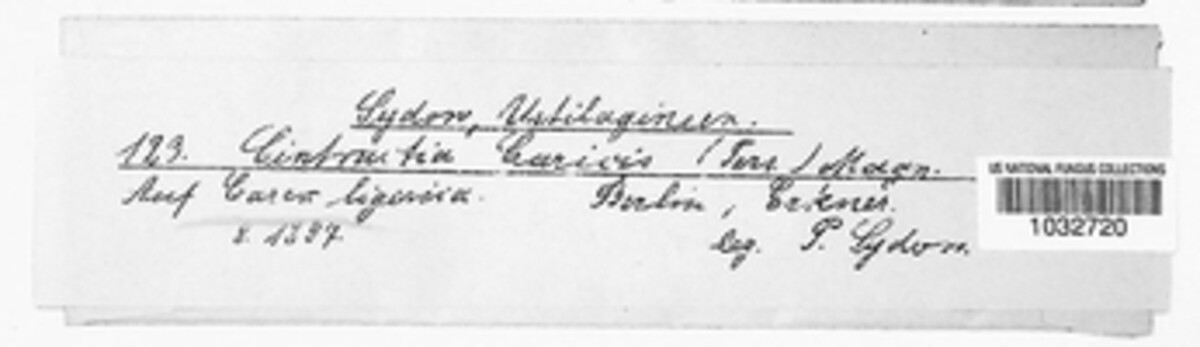 Sydow, Ustilagineen.
123. Cintractia Caricis (Pers) Magn.
Auf Carex ligerica. Berlin, Erkner.
8. 1897.
Leg. P. Sydow.
US NATIONAL FUNGUS COLLECTIONS
1032720